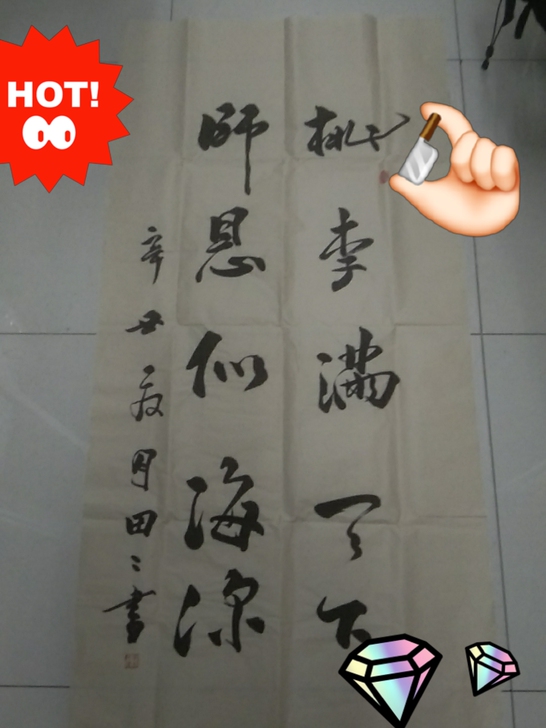 HOT!
桃李满天下
師恩似海深
辛丑夏月田々書